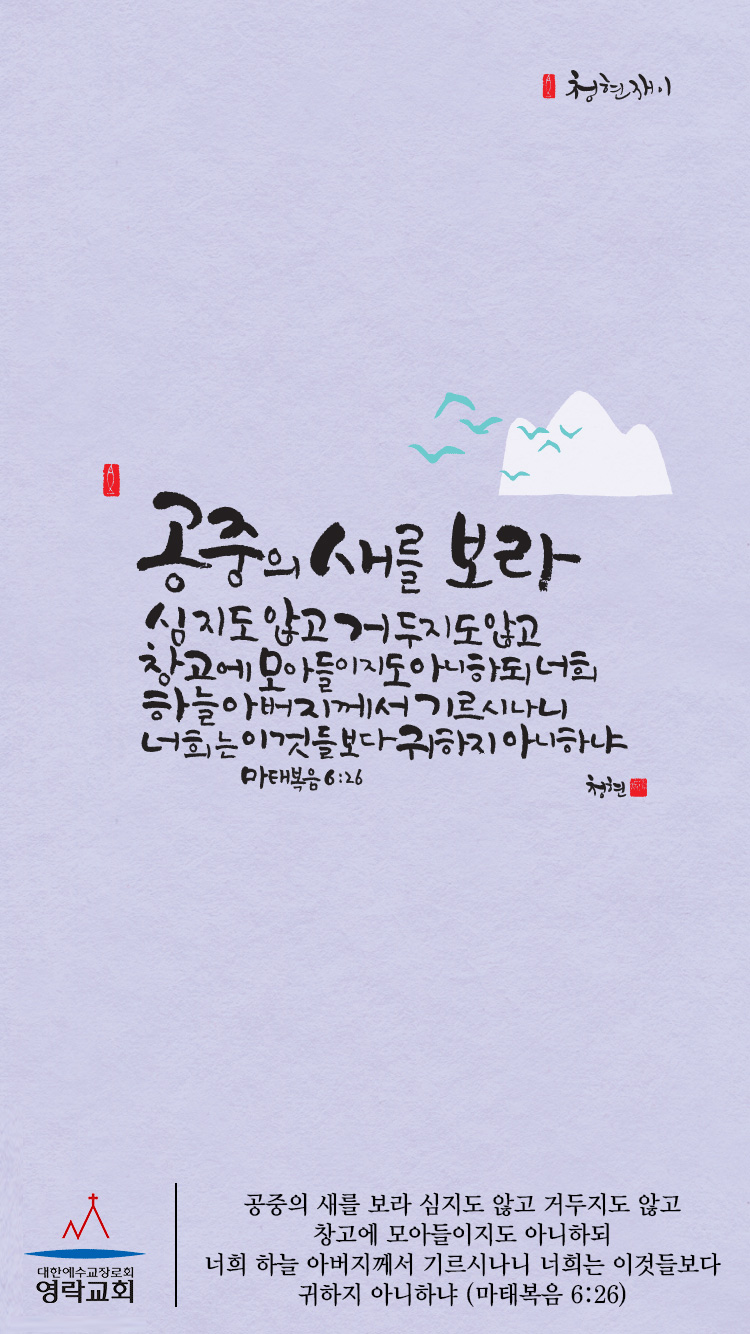 청현재이
공중의 새를 보라
심지도 않고 거두지도 않고
창고에 모아들이지도 아니하되 너희
하늘 아버지께서 기르시나니
너희는 이것들보다 귀하지 아니하냐
마태복음 6:26
청현
대한예수교장로회
영락교회
공중의 새를 보라 심지도 않고 거두지도 않고
창고에 모아들이지도 아니하되
너희 하늘 아버지께서 기르시나니 너희는 이것들보다
귀하지 아니하냐 (마태복음 6:26)